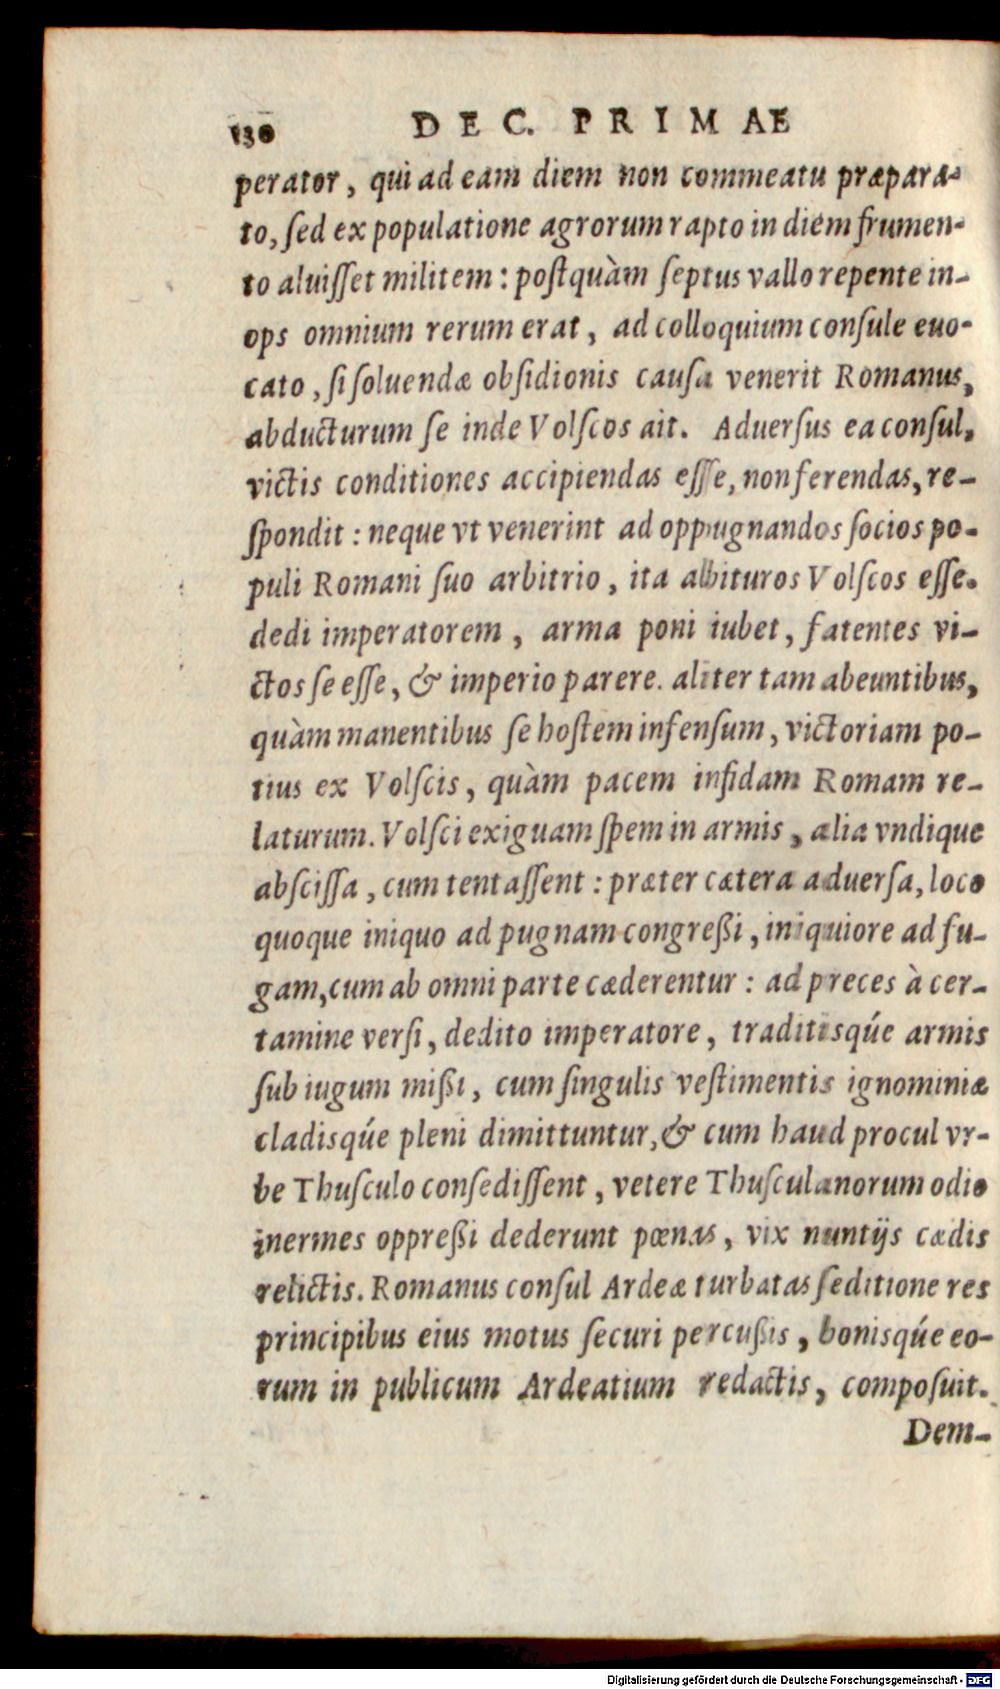 130 DEC. PRIMAE
perator, qui ad eam diem non commeatu præpara-
to, ſed ex populatione agrorum rapto in diem frumen-
to aluiſſet militem : poſtquàm ſeptus vallo repente in-
ops omnium rerum erat, ad colloquium conſule euo-
cato, ſi ſoluendæ obſidionis cauſa venerit Romanus,
abducturum ſe inde Volſcos ait. Aduerſus ea conſul,
victis conditiones accipiendas eſſe, non ferendas, re-
ſpondit : neque vt venerint ad oppugnandos ſocios po-
puli Romani ſuo arbitrio, ita abituros Volſcos eſſe.
dedi imperatorem, arma poni iubet, fatentes vi-
ctos ſe eſſe, & imperio parere. aliter tam abeuntibus,
quàm manentibus ſe hoſtem infenſum, victoriam po-
tius ex Volſcis, quàm pacem infidam Romam re-
laturum. Volſci exiguam ſpem in armis, alia vndique
abſciſſa, cum tentaſſent : præter cætera aduerſa, loco
quoque iniquo ad pugnam congreßi, iniquiore ad fu-
gam, cum ab omni parte cæderentur : ad preces à cer-
tamine verſi, dedito imperatore, traditisqúe armis
ſub iugum mißi, cum ſingulis veſtimentis ignominiæ
cladisqúe pleni dimittuntur, & cum haud procul vr-
be Thuſculo conſediſſent, vetere Thuſculanorum odio
inermes oppreßi dederunt pœnas, vix nuntijs cædis
relictis. Romanus conſul Ardeæ turbatas ſeditione res
principibus eius motus ſecuri percußis, bonisqúe eo-
rum in publicum Ardeatium redactis, compoſuit.
Dem-
Digitalisierung gefördert durch die Deutsche Forschungsgemeinschaft - DFG